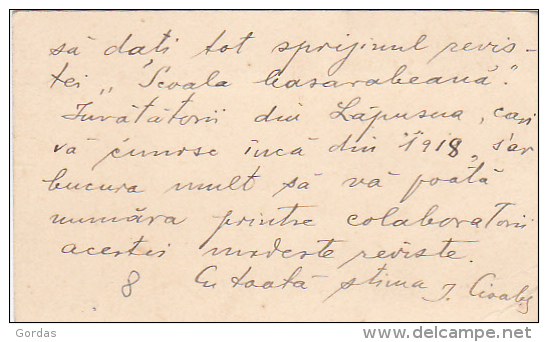 să dați tot sprijinul revis-
tei „Școala basarabeană".
Învățătorii din Lăpușna, cari
vă cunosc încă din 1918, s'ar
bucura mult să vă poată
număra printre colaboratorii
acestei modeste reviste.
Cu toată stima J.
8
Gordas
delcampe.net